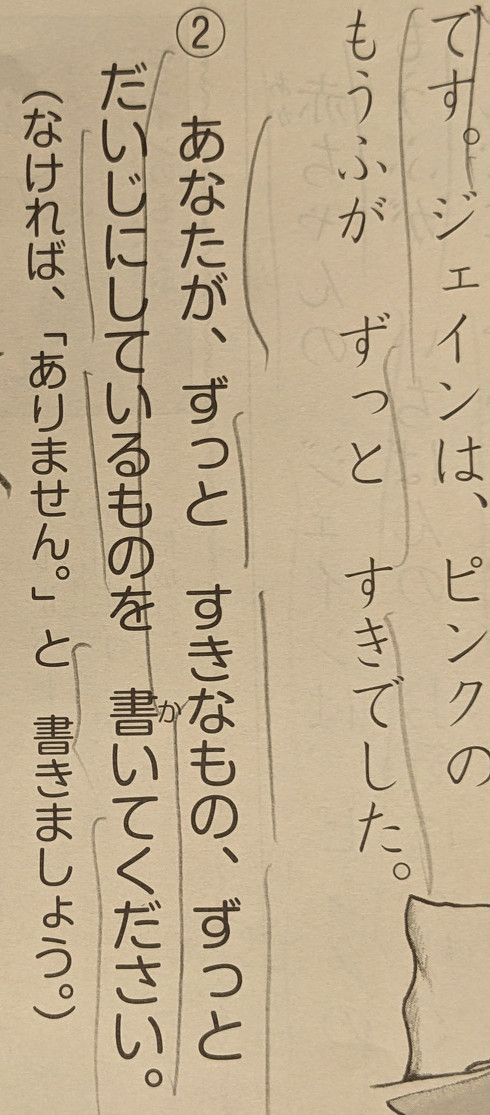 です。ジェインは、ピンクの
もうふが　ずっと　すきでした。
②　あなたが、ずっと　すきなもの、ずっと
だいじにしているものを　書いてください。
か
（なければ、「ありません。」と　書きましょう。）